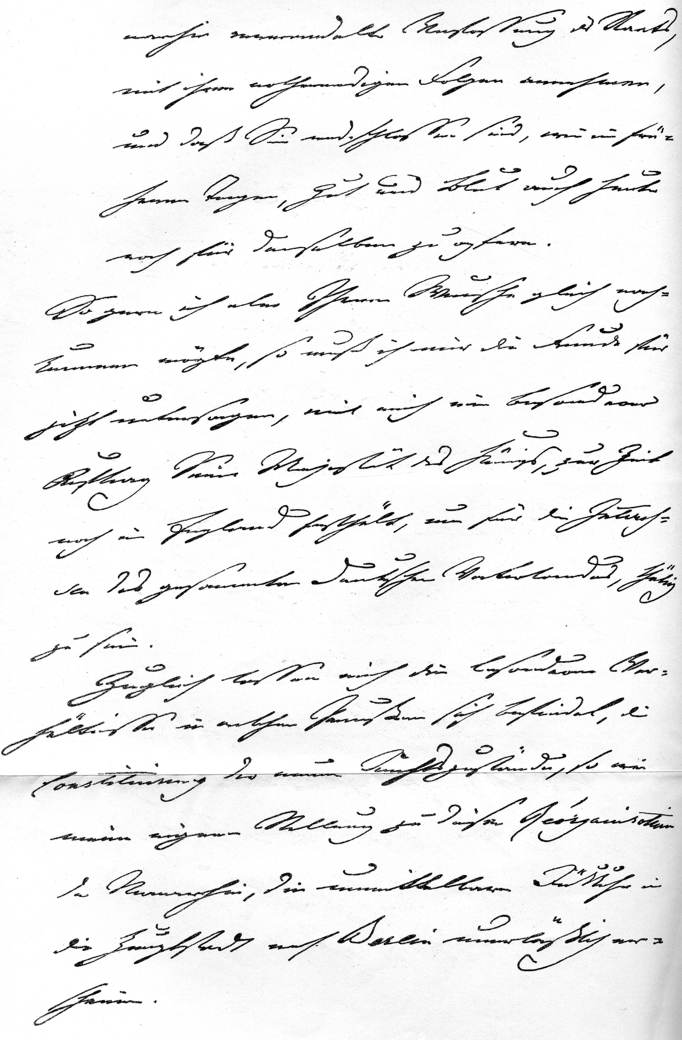 narchie umwandelte Verfassung des Staats,
mit ihren nothwendigen Folgen annehmen,
und daß Sie entschlossen sind, wie in frü-
heren Tagen, Gut und Blut auch heute
noch für denselben zu opfern.
So gern ich aber Ihrem Wunsche gleich nach-
kommen mögte, so muß ich mir die Freude für
jetzt untersagen, weil mich ein besonderer
Auftrag Seiner Majestät des Königs, zur Zeit
noch in England festhält, um für die Interes-
sen des gesammten deutschen Vaterlandes, thätig
zu sein.
Zugleich lassen mich die besonderen Ver-
hältnisse in welchen Preußen sich befindet, die
Constituirung der neuen Rechtszustände, so wie
meine eigene Stellung zu dieser Reorganisation
der Monarchie, die unmittelbare Rückkehr in
die Hauptstadt nach Berlin unerläßlich er-
scheinen.